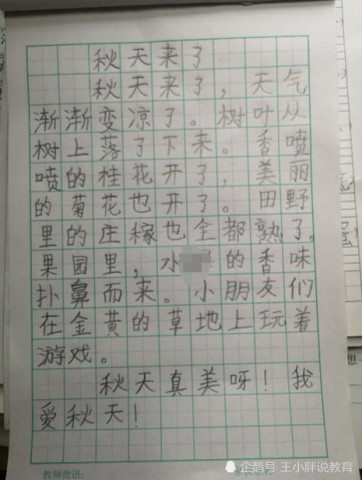 秋天来了
秋天来了，天气
渐渐变凉了。树叶从
树上落了下来。香喷
喷的桂花开了，美丽
的菊花也开了。田野
里的庄稼也全都熟了。
果园里，水的香味
扑鼻而来。小朋友们
在金黄的草地上玩着
游戏。
秋天真美呀！我
爱秋天！
教师批语：
企鹅号 王小胖说教育